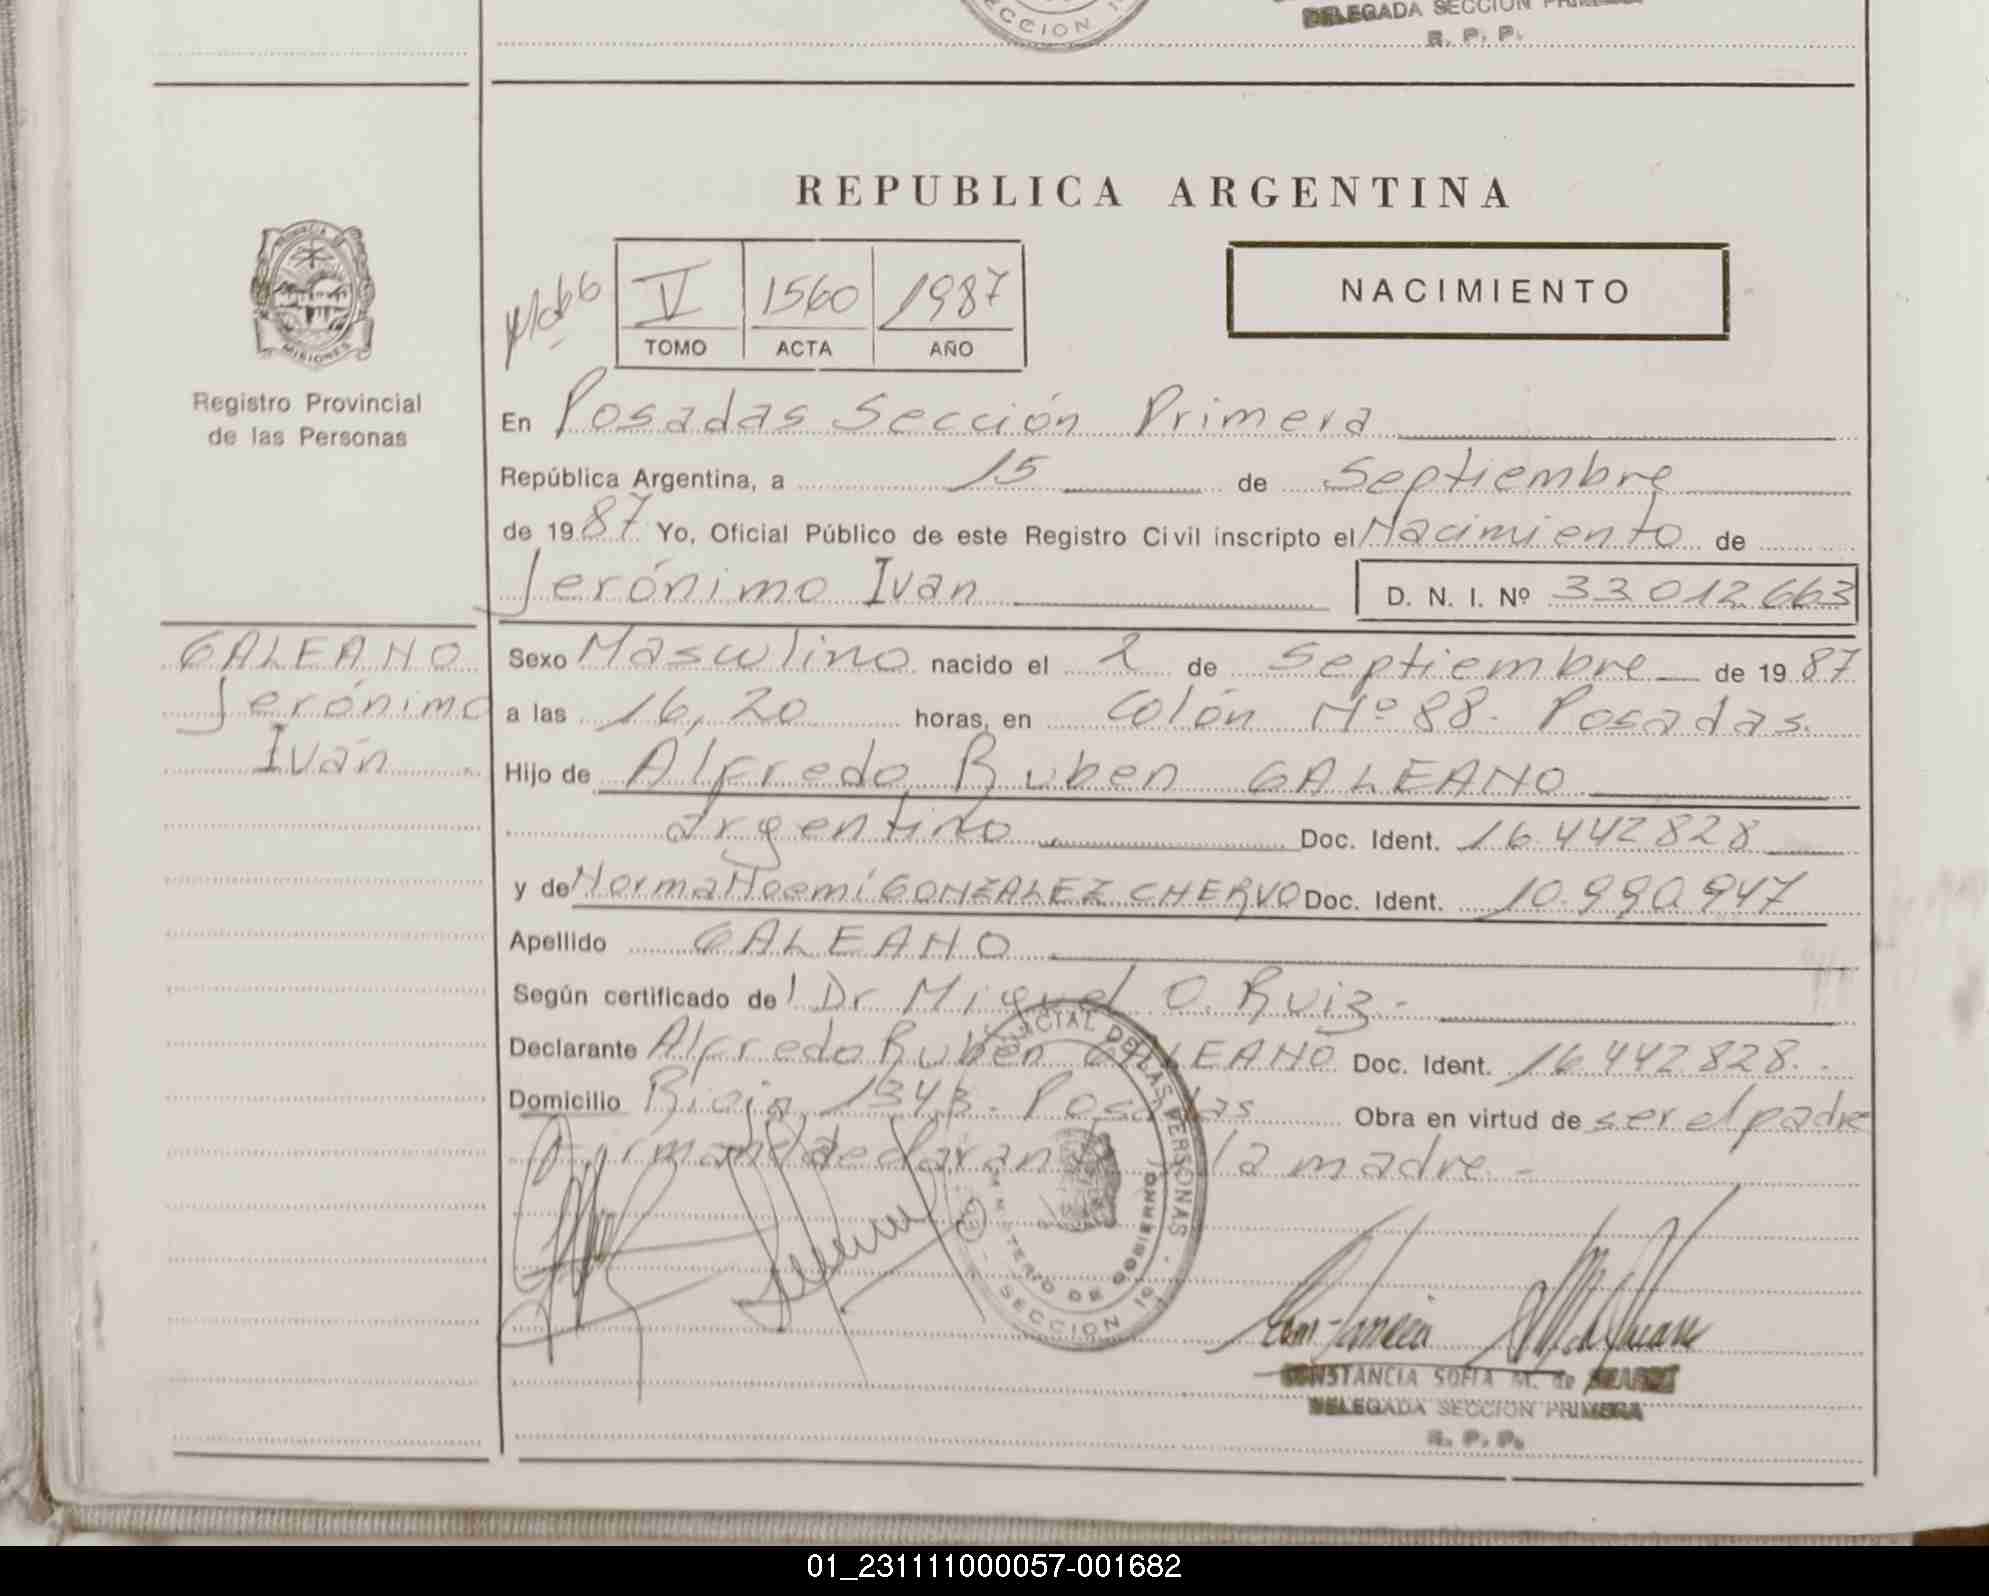 SECCION 1
DELEGADA SECCION PRIMERA
R. P. P.
PROVINCIA DE
MISIONES
Registro Provincial
de las Personas
GALEANO
Jerónimo
Iván
REPUBLICA ARGENTINA
V 1560 1987
TOMO ACTA AÑO
NACIMIENTO
En Posadas Sección Primera
República Argentina, a 15 de Septiembre
de 1987 Yo, Oficial Público de este Registro Civil inscripto el Nacimiento de
Jerónimo Ivan D. N. I. Nº 33012663
Sexo Masculino nacido el 2 de Septiembre de 1987
a las 16,20 horas, en Colón Nº 88. Posadas.
Hijo de Alfredo Ruben GALEANO
argentino Doc. Ident. 16.442828
y de Norma Noemí GONZALEZ CHERVO Doc. Ident. 10.990.947
Apellido GALEANO
Según certificado del Dr Miguel O. Ruiz.-
Declarante Alfredo Ruben GALEANO Doc. Ident. 16.442828.-
Domicilio Rioja 1343. Posadas Obra en virtud de ser el padre
la madre.-
DE LAS PERSONAS
MINISTERIO DE GOBIERNO
SECCION 1º
CONSTANCIA SOFIA M. de
DELEGADA SECCION PRIMERA
R. P. P.
01_231111000057-001682